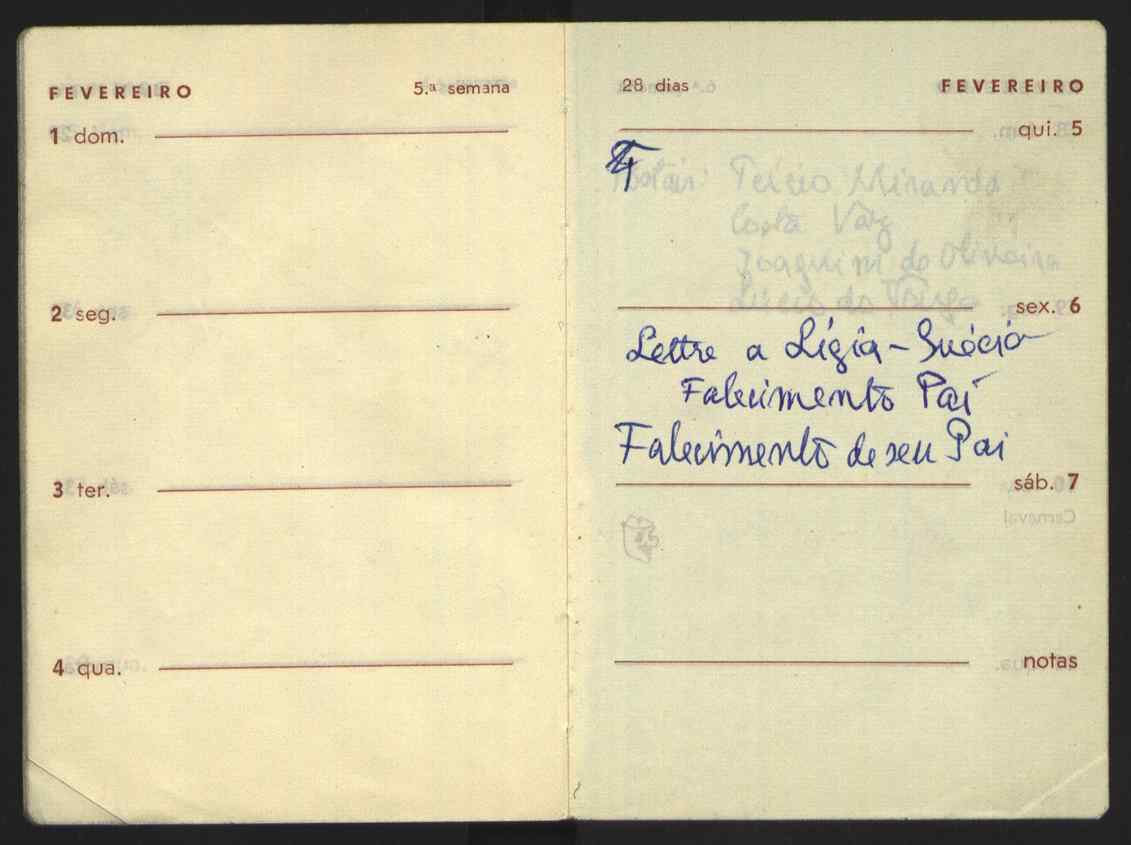 FEVEREIRO 5.ª semana
1 dom.
2 seg.
3 ter.
4 qua.
28 dias FEVEREIRO
qui. 5
Miranda
Costa Vaz
Joaquim de Oliveira
sex. 6
Lettre a Lígia - Suécia
Falecimento Pai
Falecimento de seu Pai
sáb. 7
notas